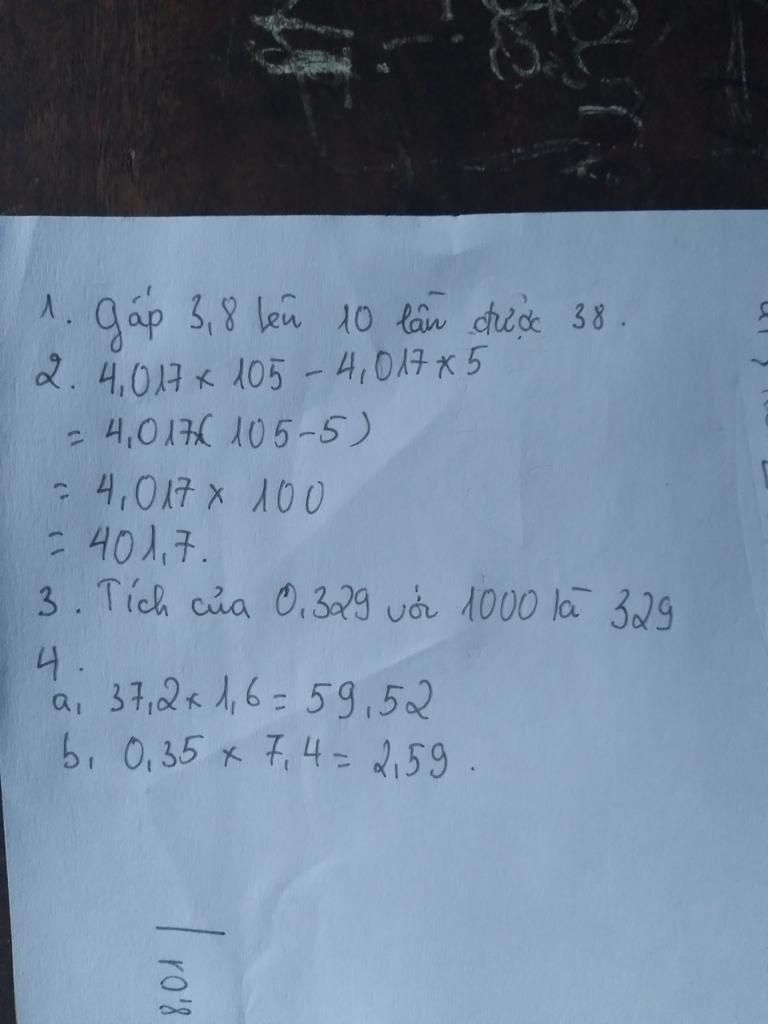 1. Gấp 3,8 lên 10 lần được 38.
2. 4,017 × 105 - 4,017 × 5
= 4,017×( 105-5)
= 4,017 × 100
= 401,7.
3. Tích của 0,329 với 1000 là 329
4.
a, 37,2 × 1,6 = 59,52
b, 0,35 × 7,4 = 2,59.